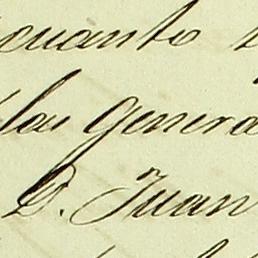 cuanto
las genera
D. Juan